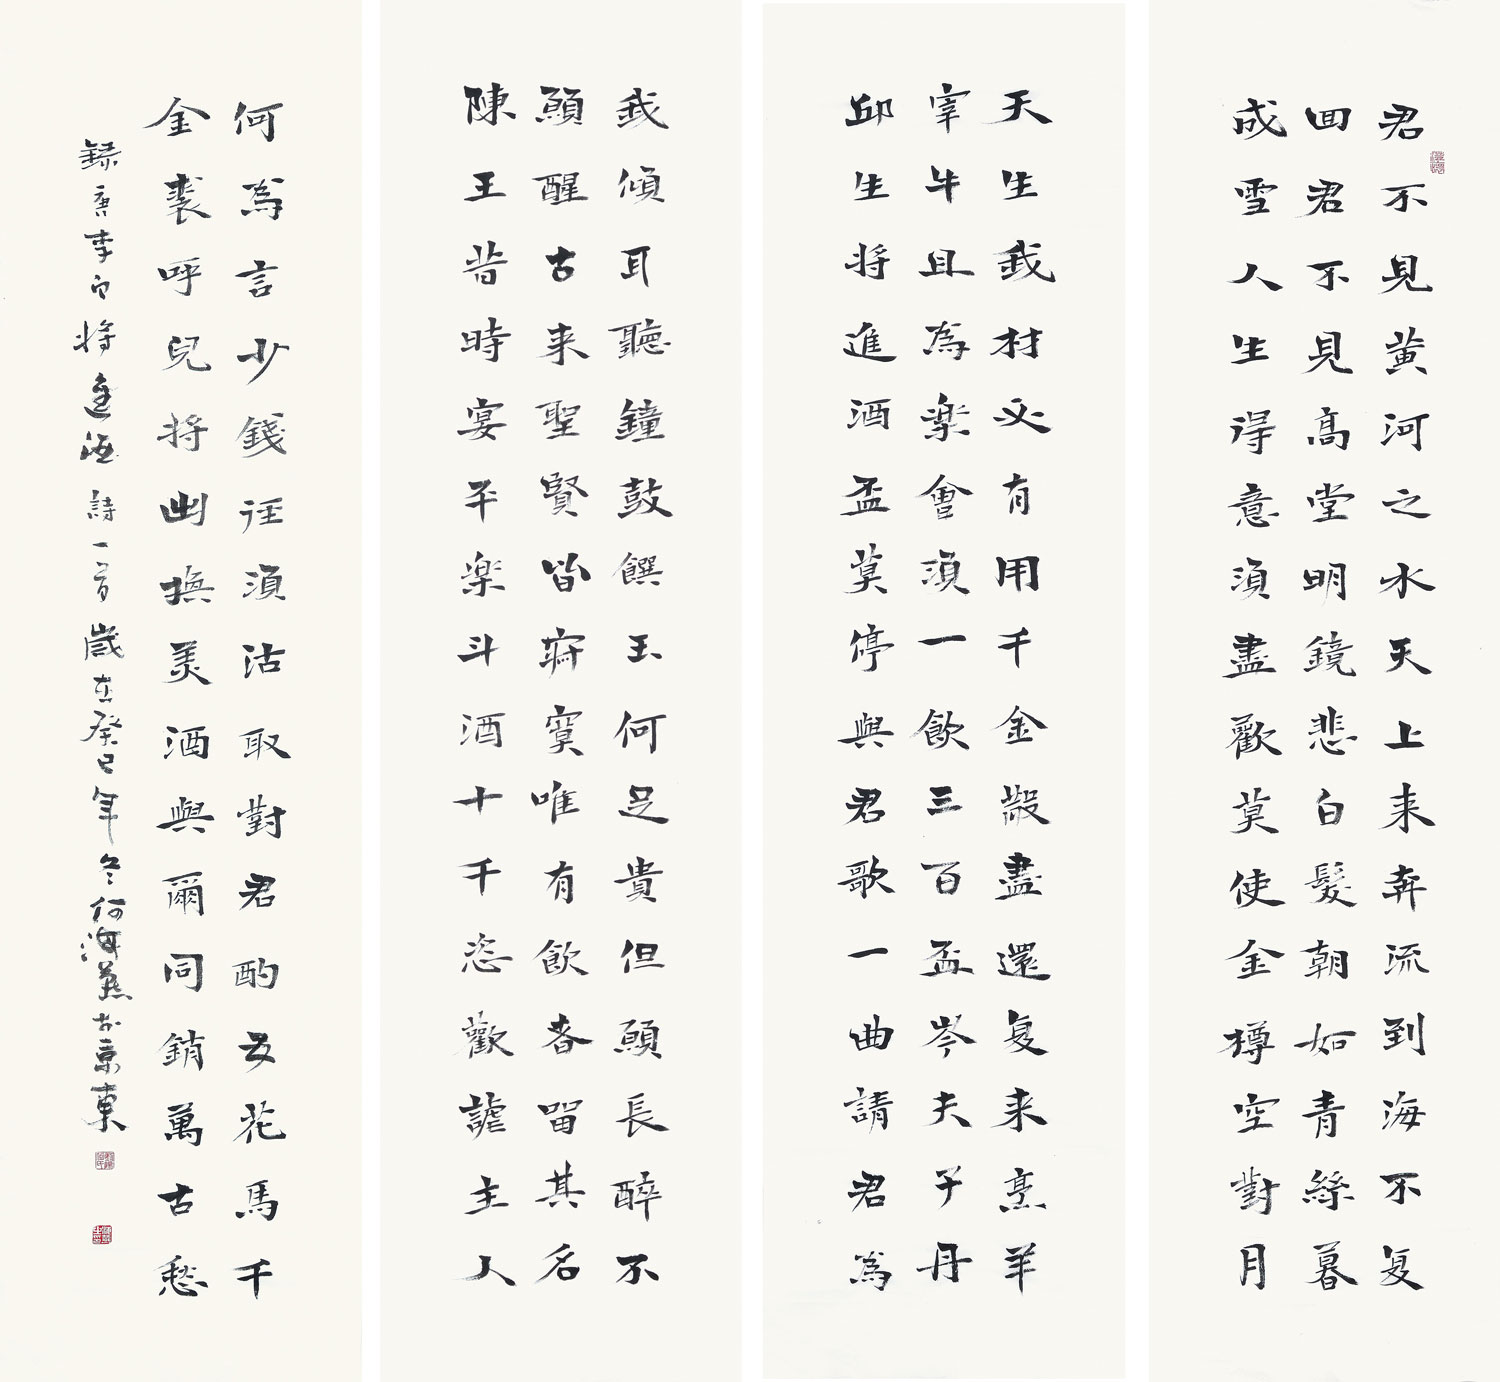 君不見黃河之水天上来奔流到海不复
回君不見高堂明鏡悲白髮朝如青絲暮
成雪人生得意須盡歡莫使金樽空對月
天生我材必有用千金散盡還复来烹羊
宰牛且為樂會須一飲三百盃岑夫子丹
邱生将進酒盃莫停與君歌一曲請君為
我傾耳聽鐘鼓饌玉何足貴但願長醉不
願醒古来聖賢皆寂寞唯有飲者留其名
陳王昔時宴平樂斗酒十千恣歡謔主人
何為言少錢徑須沽取對君酌五花馬千
金裘呼兒将出換美酒與爾同銷萬古愁
録唐李白将進酒詩一首歲在癸巳年冬何海燕於京東